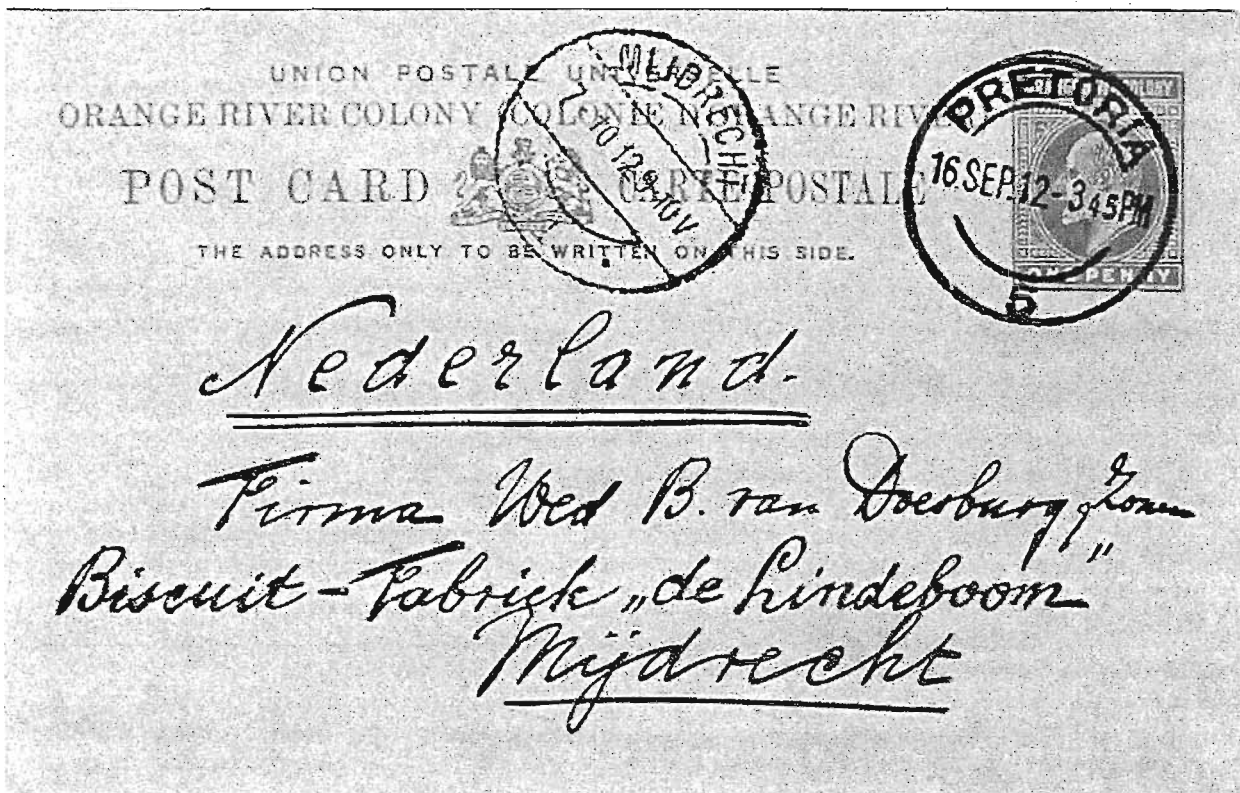 UNION POSTALE UNIVERSELLE
ORANGE RIVER COLONY (COLONIE DE ORANGE RIVER)
POST CARD CARTE POSTALE
THE ADDRESS ONLY TO BE WRITTEN ON THIS SIDE.
MIJDRECHT
7 10 12 9-10V
PRETORIA
16 SEP 12-3 45PM
5
ONE PENNY
Nederland.
Firma Wed B. van Doesburg & Zonen
Biscuit-Fabriek „de Lindeboom"
Mijdrecht